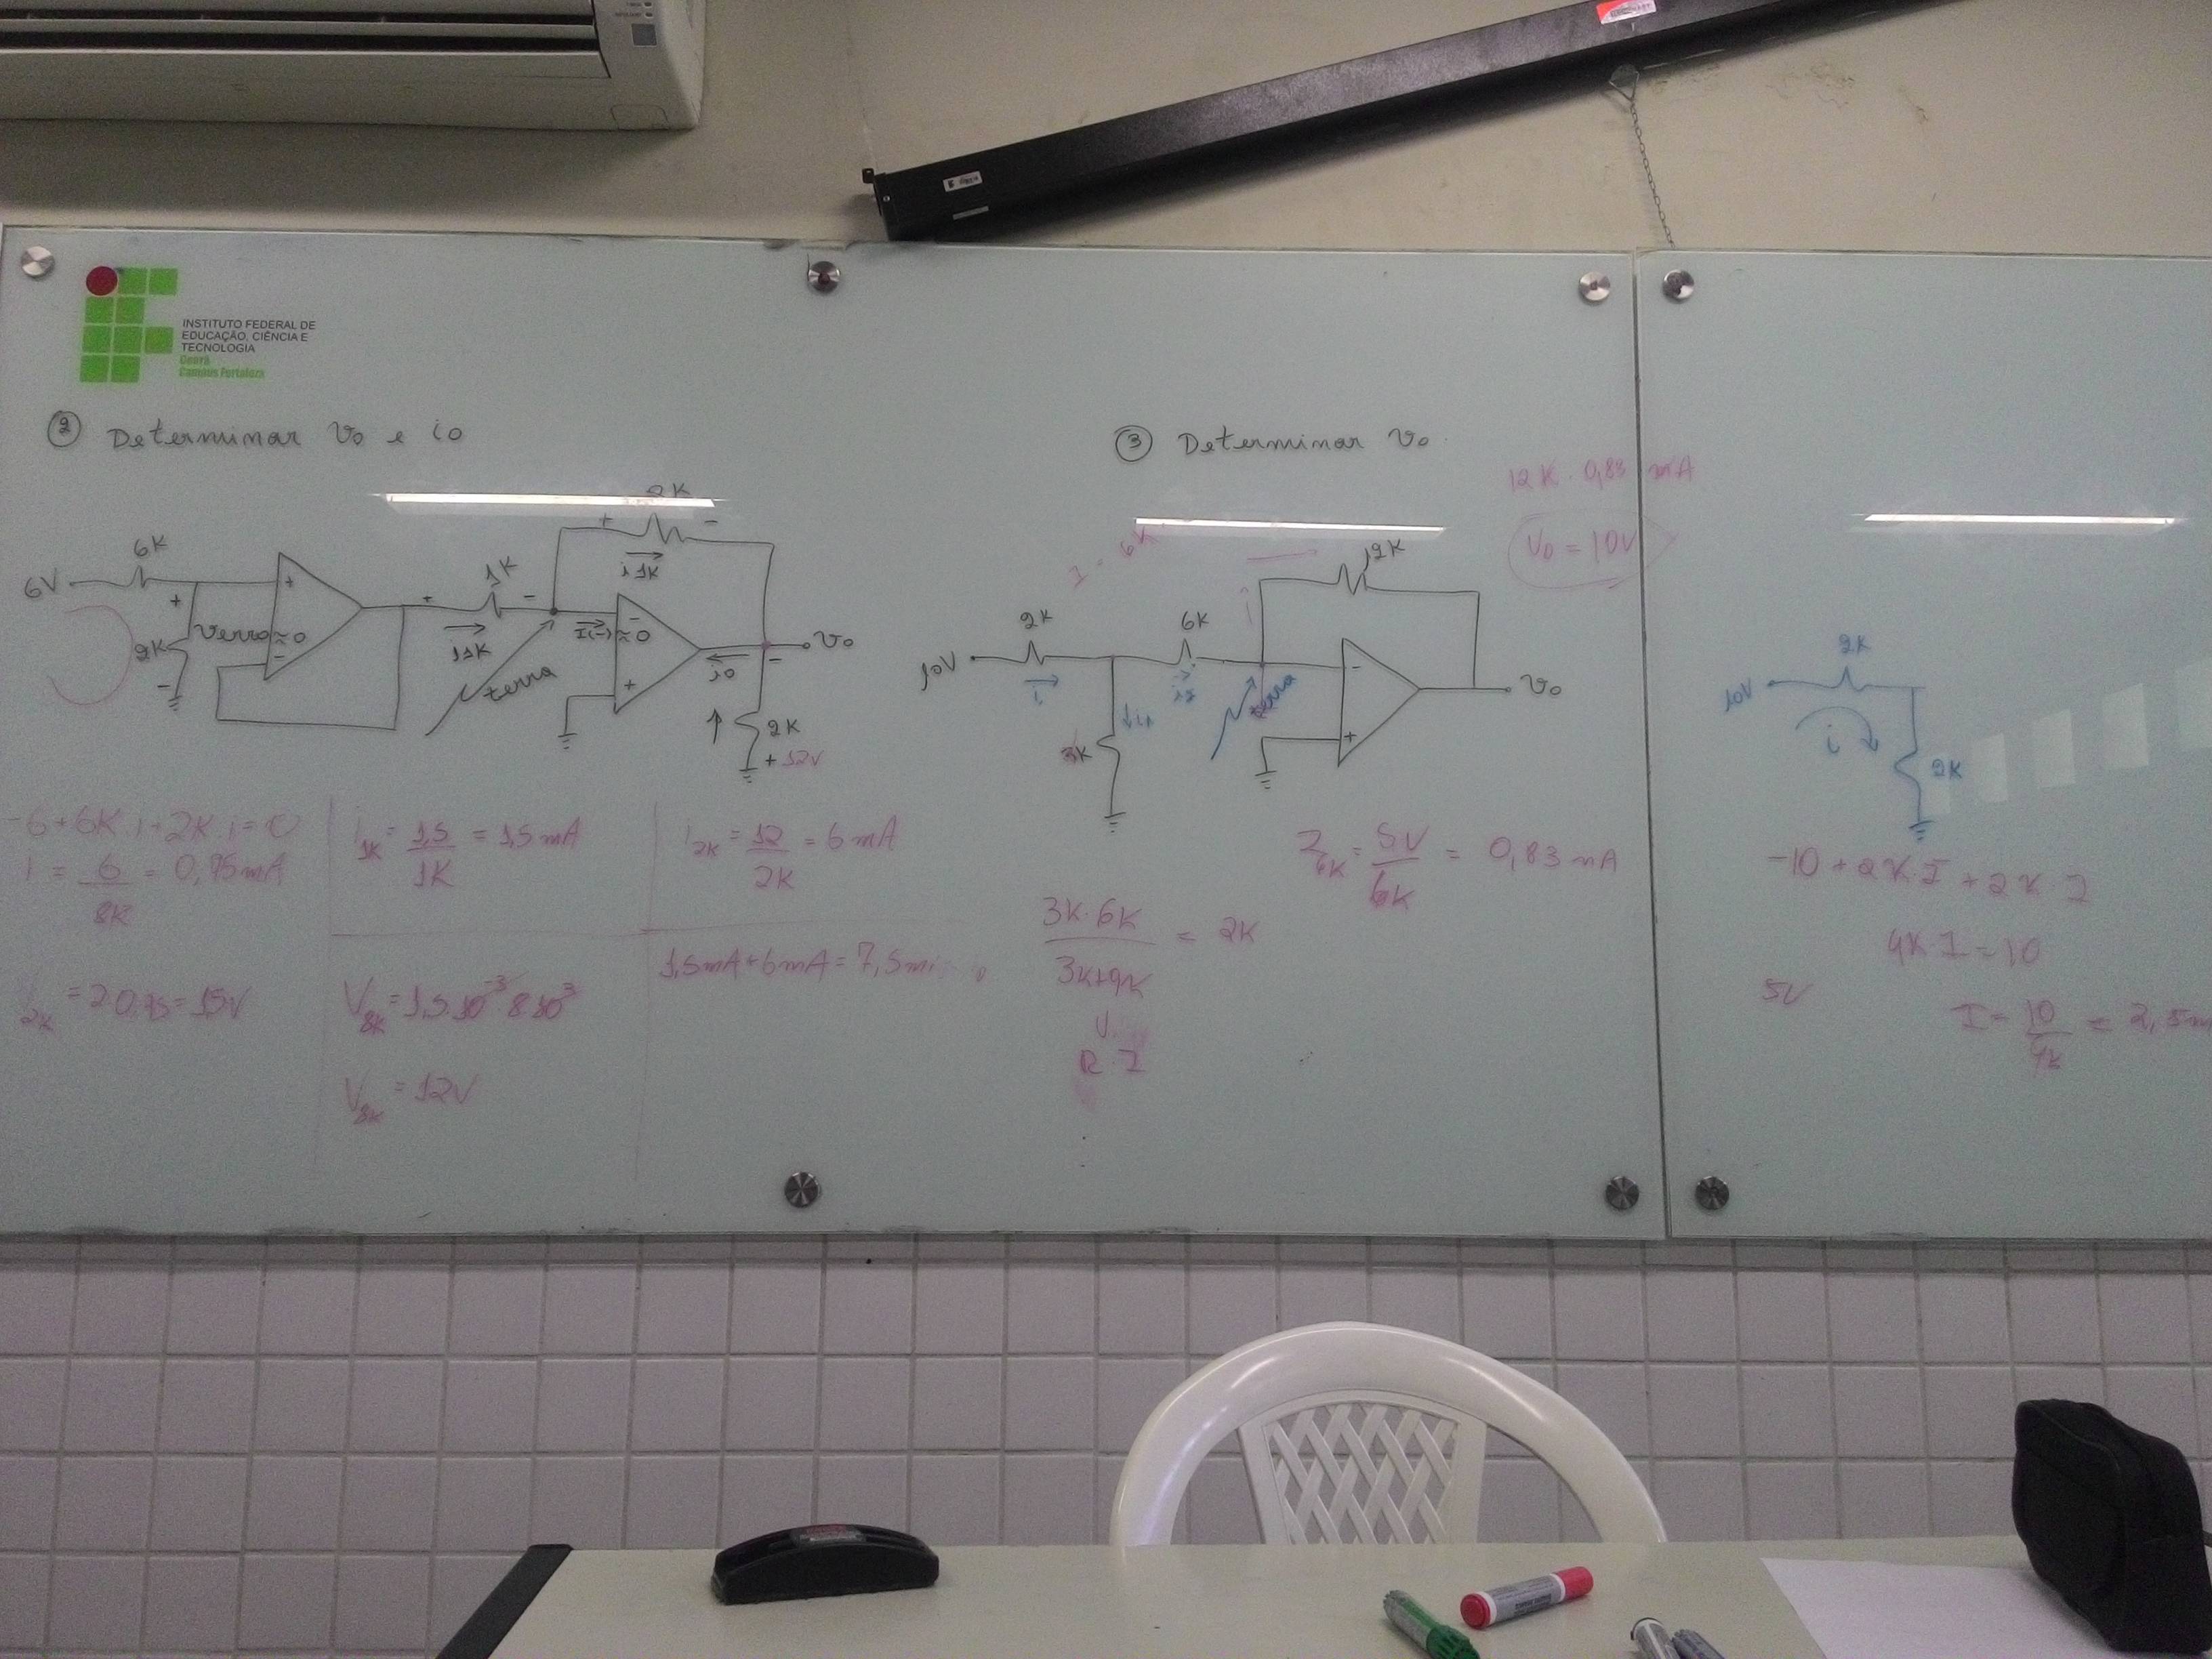 INSTITUTO FEDERAL DE
EDUCAÇÃO, CIÊNCIA E
TECNOLOGIA
Ceará
Campus Fortaleza
② Determinar vo e io
6V
6K
+
2K
-
Verro ≈ 0
+
-
+
1K
-
i1K
terra
+
2K
-
i 1K
I(-) ≈ 0
-
+
io
vo
-
2K
+ 12V
-6+6K i+2K i=0
i = 6/8K = 0,75mA
V2K = 2.0,75 = 1,5V
i1K = 1,5/1K = 1,5mA
V8K = 1,5.10^-3 8.10^3
V8K = 12V
i2K = 12/2K = 6mA
1,5mA+6mA = 7,5m
③ Determinar vo
12K . 0,83 mA
Vo = 10V
I = 6K
10V
2K
i
i1
3K
6K
i2
terra
12K
-
+
vo
I6K = 5V/6K = 0,83 mA
3K.6K/3K+9K = 2K
V
R.I
10V
2K
i
2K
-10+2K.I+2K.I
4K.I=10
5V
I = 10/4K = 2,5m